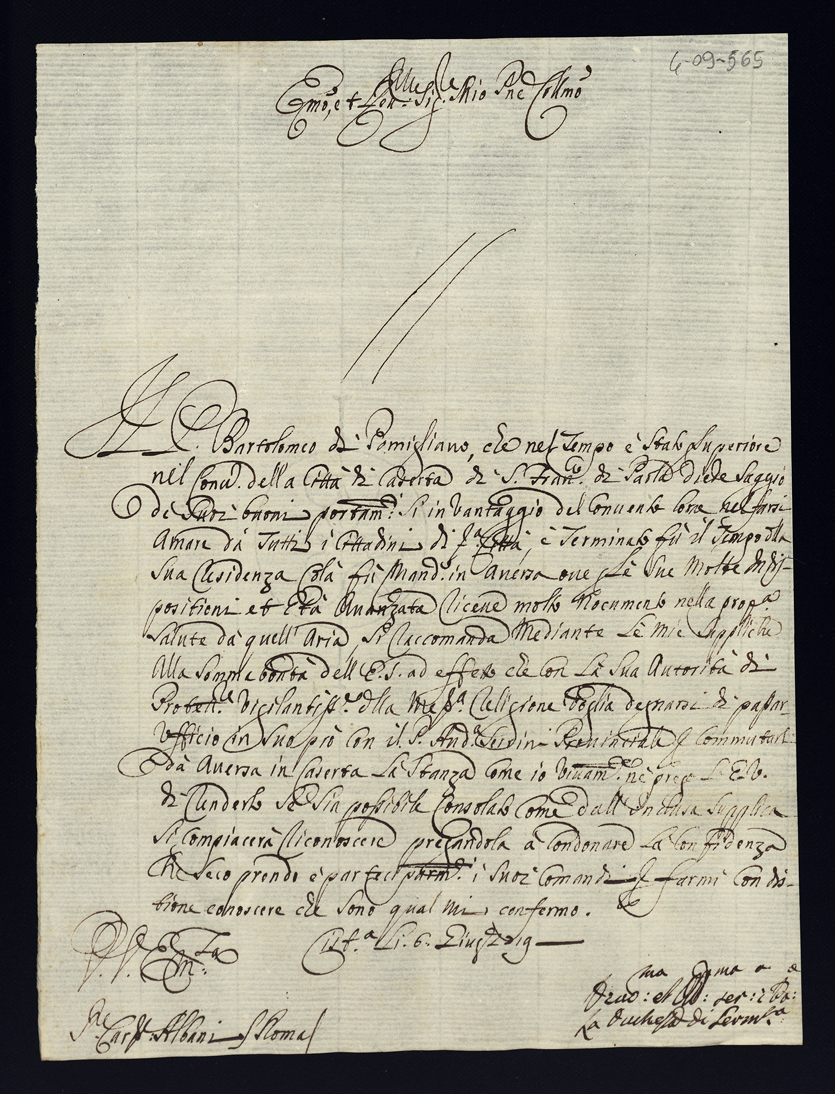 6-09-565
Emo, et Reu: Sig. Mio Pne Collmo
Il P. Bartolomeo di Pomigliano, che nel Tempo è Stato Superiore
nel Conu. della Città di Caserta di S. Fran. di Paola diede Saggio
de Suoi buoni portam. Si in Vantaggio del Conuento Come nel farsi
Amare da Tutti i Cittadini di Città, e Terminato fù il Tempo
Sua Residenza Colà fù Mand. in Auersa oue Le Sue Molte Indis-
positioni et Età Auanzata Riceue molto Nocumento nella prop.a
Salute da quell'Aria, Si Raccomanda Mediante Le Mie Suppliche
Alla Somma bontà dell'E.S. ad effetto che con La Sua Autorità di
Protett.e Vigilantiss.o della Religione Voglia degnarsi di passar
Vfficio in Suo prò con il P. And. Prouinciale Commutarli
da Auersa in Caserta La Stanza Come io Viuam.e nè prego L'E.V.
di Renderlo Sia possibile Consolato Come dall'Inclusa Supplica
Si compiacerà Riconoscere pregandola a Condonare La Confidenza
Che Seco prendo e partecipandomi i Suoi Comandi farmi Con dis-
tione conoscere che Sono qual Mi confermo.
V. Em.za
Li. 6. Giug.
Car. Albani Roma
La Duchessa di